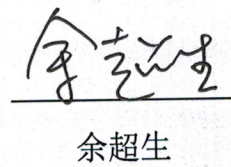 余超生
余超生